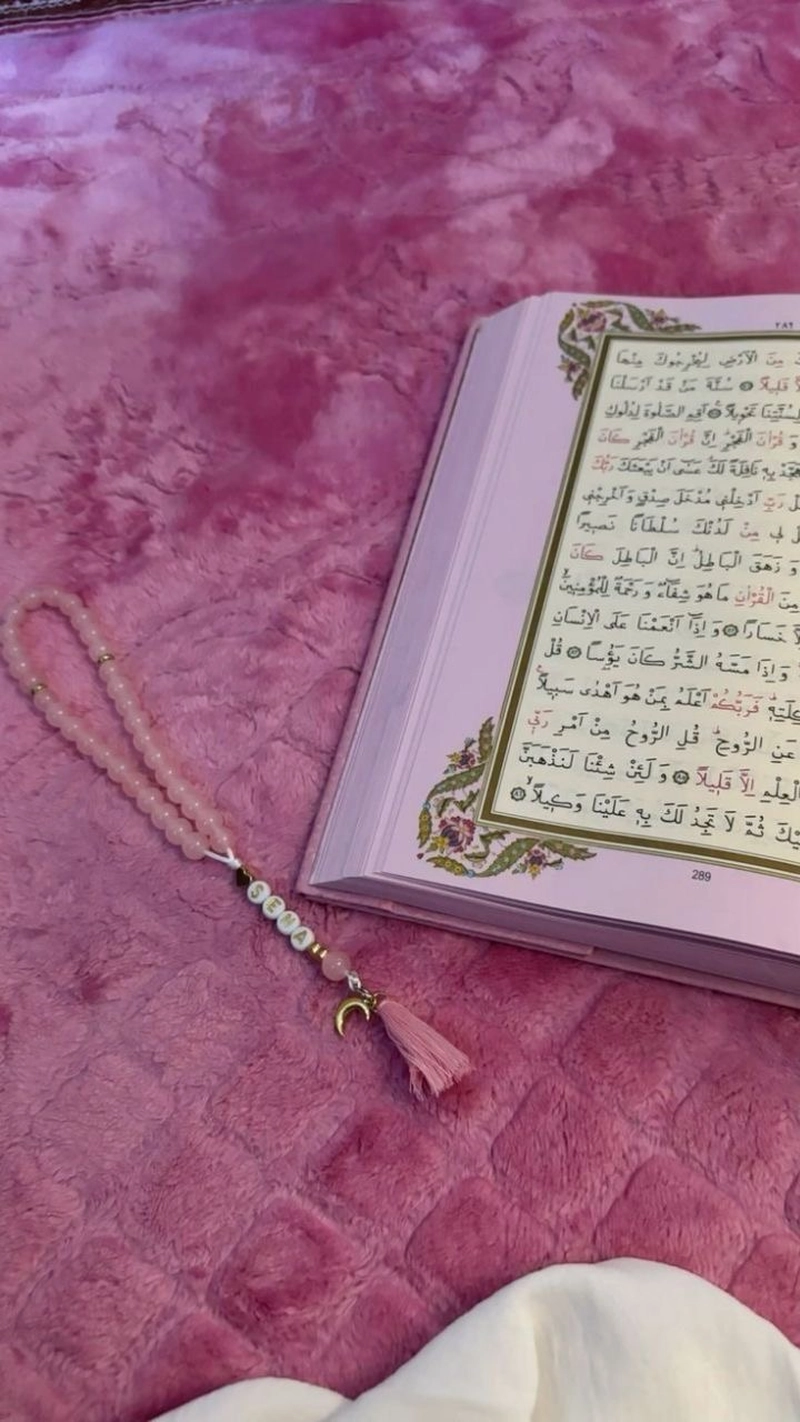 ٢٨٩
مِنَ الْاَرْضِ لِيُخْرِجُوكَ مِنْهَا
قَلٖيلاً ۞ سُنَّةَ مَنْ قَدْ اَرْسَلْنَا
لِسُنَّتِنَا تَحْوٖيلاً ۞ اَقِمِ الصَّلٰوةَ لِدُلُوكِ
وَ قُرْاٰنَ الْفَجْرِؕ اِنَّ قُرْاٰنَ الْفَجْرِ كَانَ
بِهٖ نَافِلَةً لَكَؗ عَسٰٓى اَنْ يَبْعَثَكَ رَبُّكَ
رَبِّ اَدْخِلْنٖي مُدْخَلَ صِدْقٍ وَ اَخْرِجْنٖي
لٖي مِنْ لَدُنْكَ سُلْطَانًا نَصٖيرًا
وَ زَهَقَ الْبَاطِلُؕ اِنَّ الْبَاطِلَ كَانَ
مِنَ الْقُرْاٰنِ مَا هُوَ شِفَٓاءٌ وَ رَحْمَةٌ لِلْمُؤْمِنٖينَۙ
خَسَارًا ۞ وَ اِذَٓا اَنْعَمْنَا عَلَى الْاِنْسَانِ
وَ اِذَا مَسَّهُ الشَّرُّ كَانَ يَؤُسًا ۞ قُلْ
فَرَبُّكُمْ اَعْلَمُ بِمَنْ هُوَ اَهْدٰى سَبٖيلاً
عَنِ الرُّوحِؕ قُلِ الرُّوحُ مِنْ اَمْرِ رَبّٖي
الْعِلْمِ اِلَّا قَلٖيلاً ۞ وَ لَئِنْ شِئْنَا لَنَذْهَبَنَّ
ثُمَّ لَا تَجِدُ لَكَ بِهٖ عَلَيْنَا وَكٖيلاًۙ ۞
289
SEMA